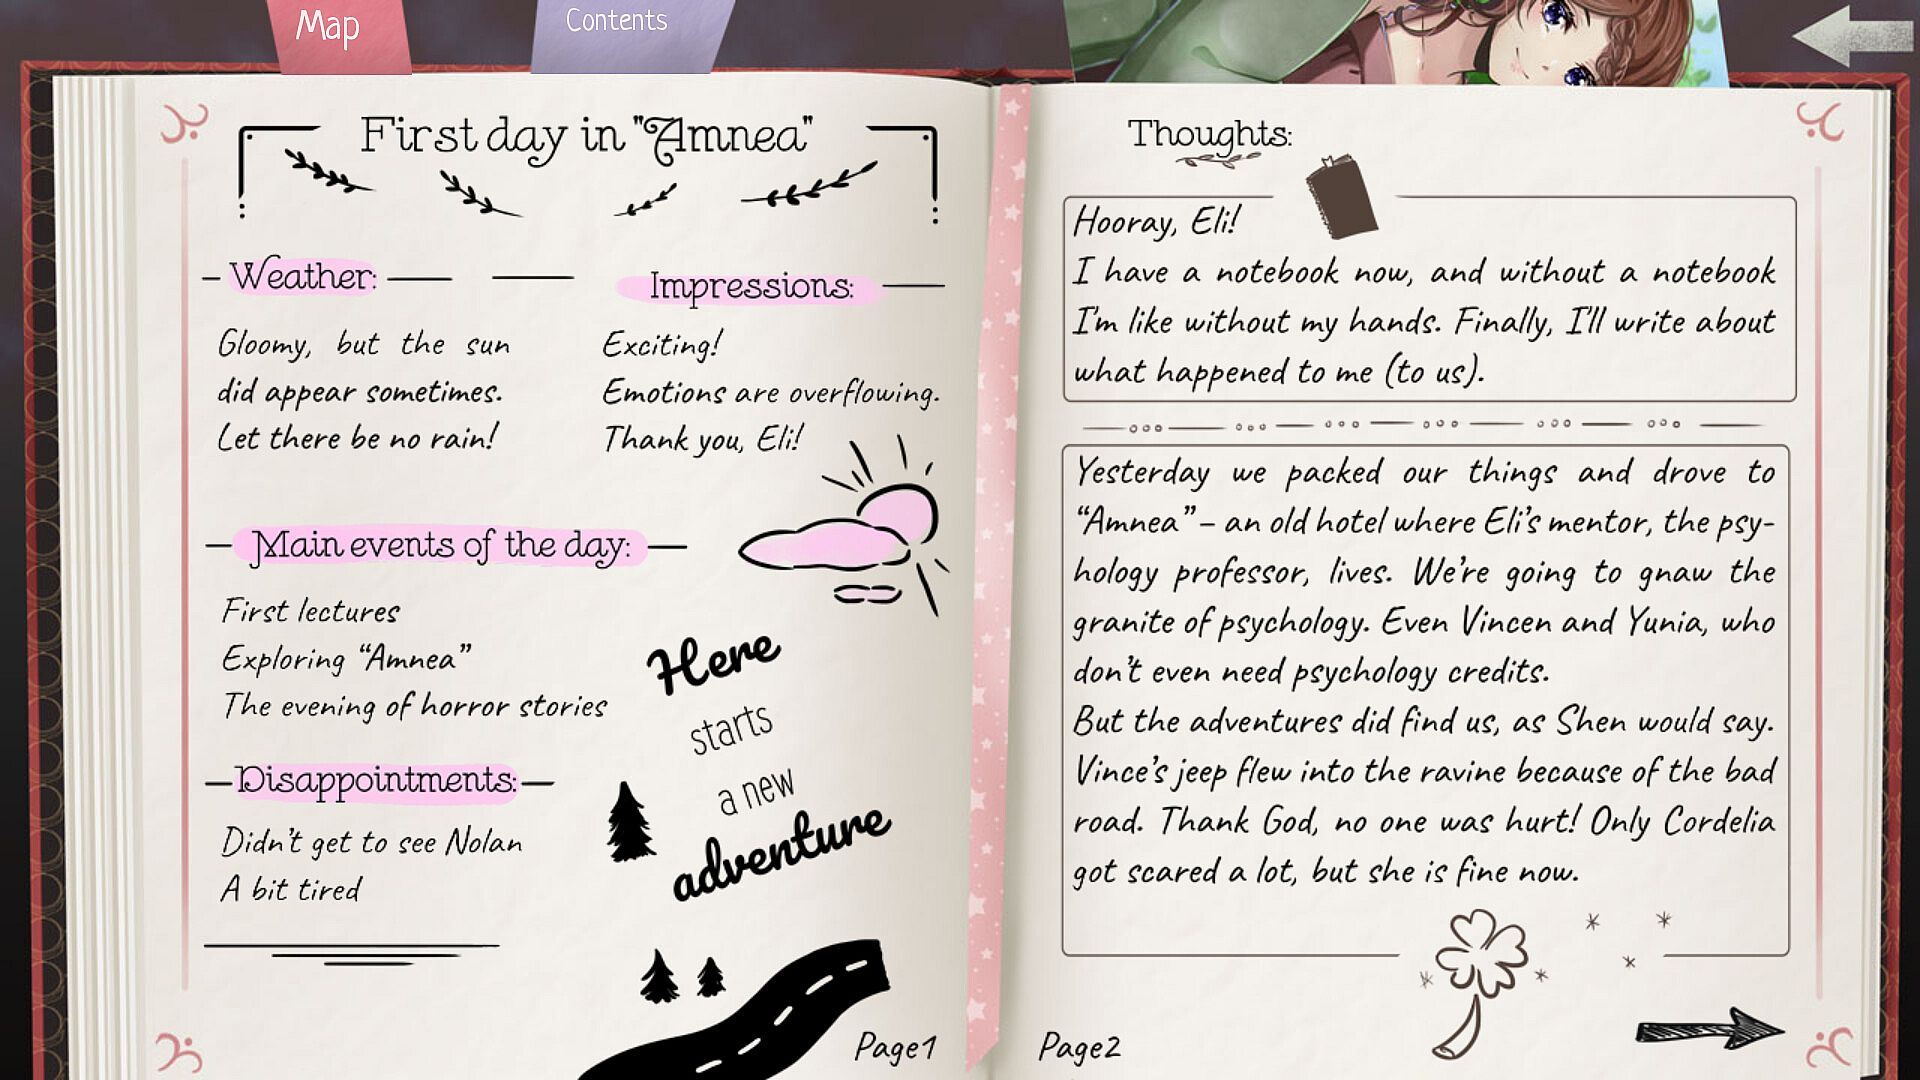 Map
Contents
First day in "Amnea"
Weather:
Gloomy, but the sun
did appear sometimes.
Let there be no rain!
Impressions:
Exciting!
Emotions are overflowing.
Thank you, Eli!
Main events of the day:
First lectures
Exploring “Amnea”
The evening of horror stories
Disappointments:
Didn’t get to see Nolan
A bit tired
Here
starts
a new
adventure
Page1
Thoughts:
Hooray, Eli!
I have a notebook now, and without a notebook
I’m like without my hands. Finally, I’ll write about
what happened to me (to us).
Yesterday we packed our things and drove to
“Amnea” – an old hotel where Eli’s mentor, the psy-
hology professor, lives. We’re going to gnaw the
granite of psychology. Even Vincen and Yunia, who
don’t even need psychology credits.
But the adventures did find us, as Shen would say.
Vince’s jeep flew into the ravine because of the bad
road. Thank God, no one was hurt! Only Cordelia
got scared a lot, but she is fine now.
Page2